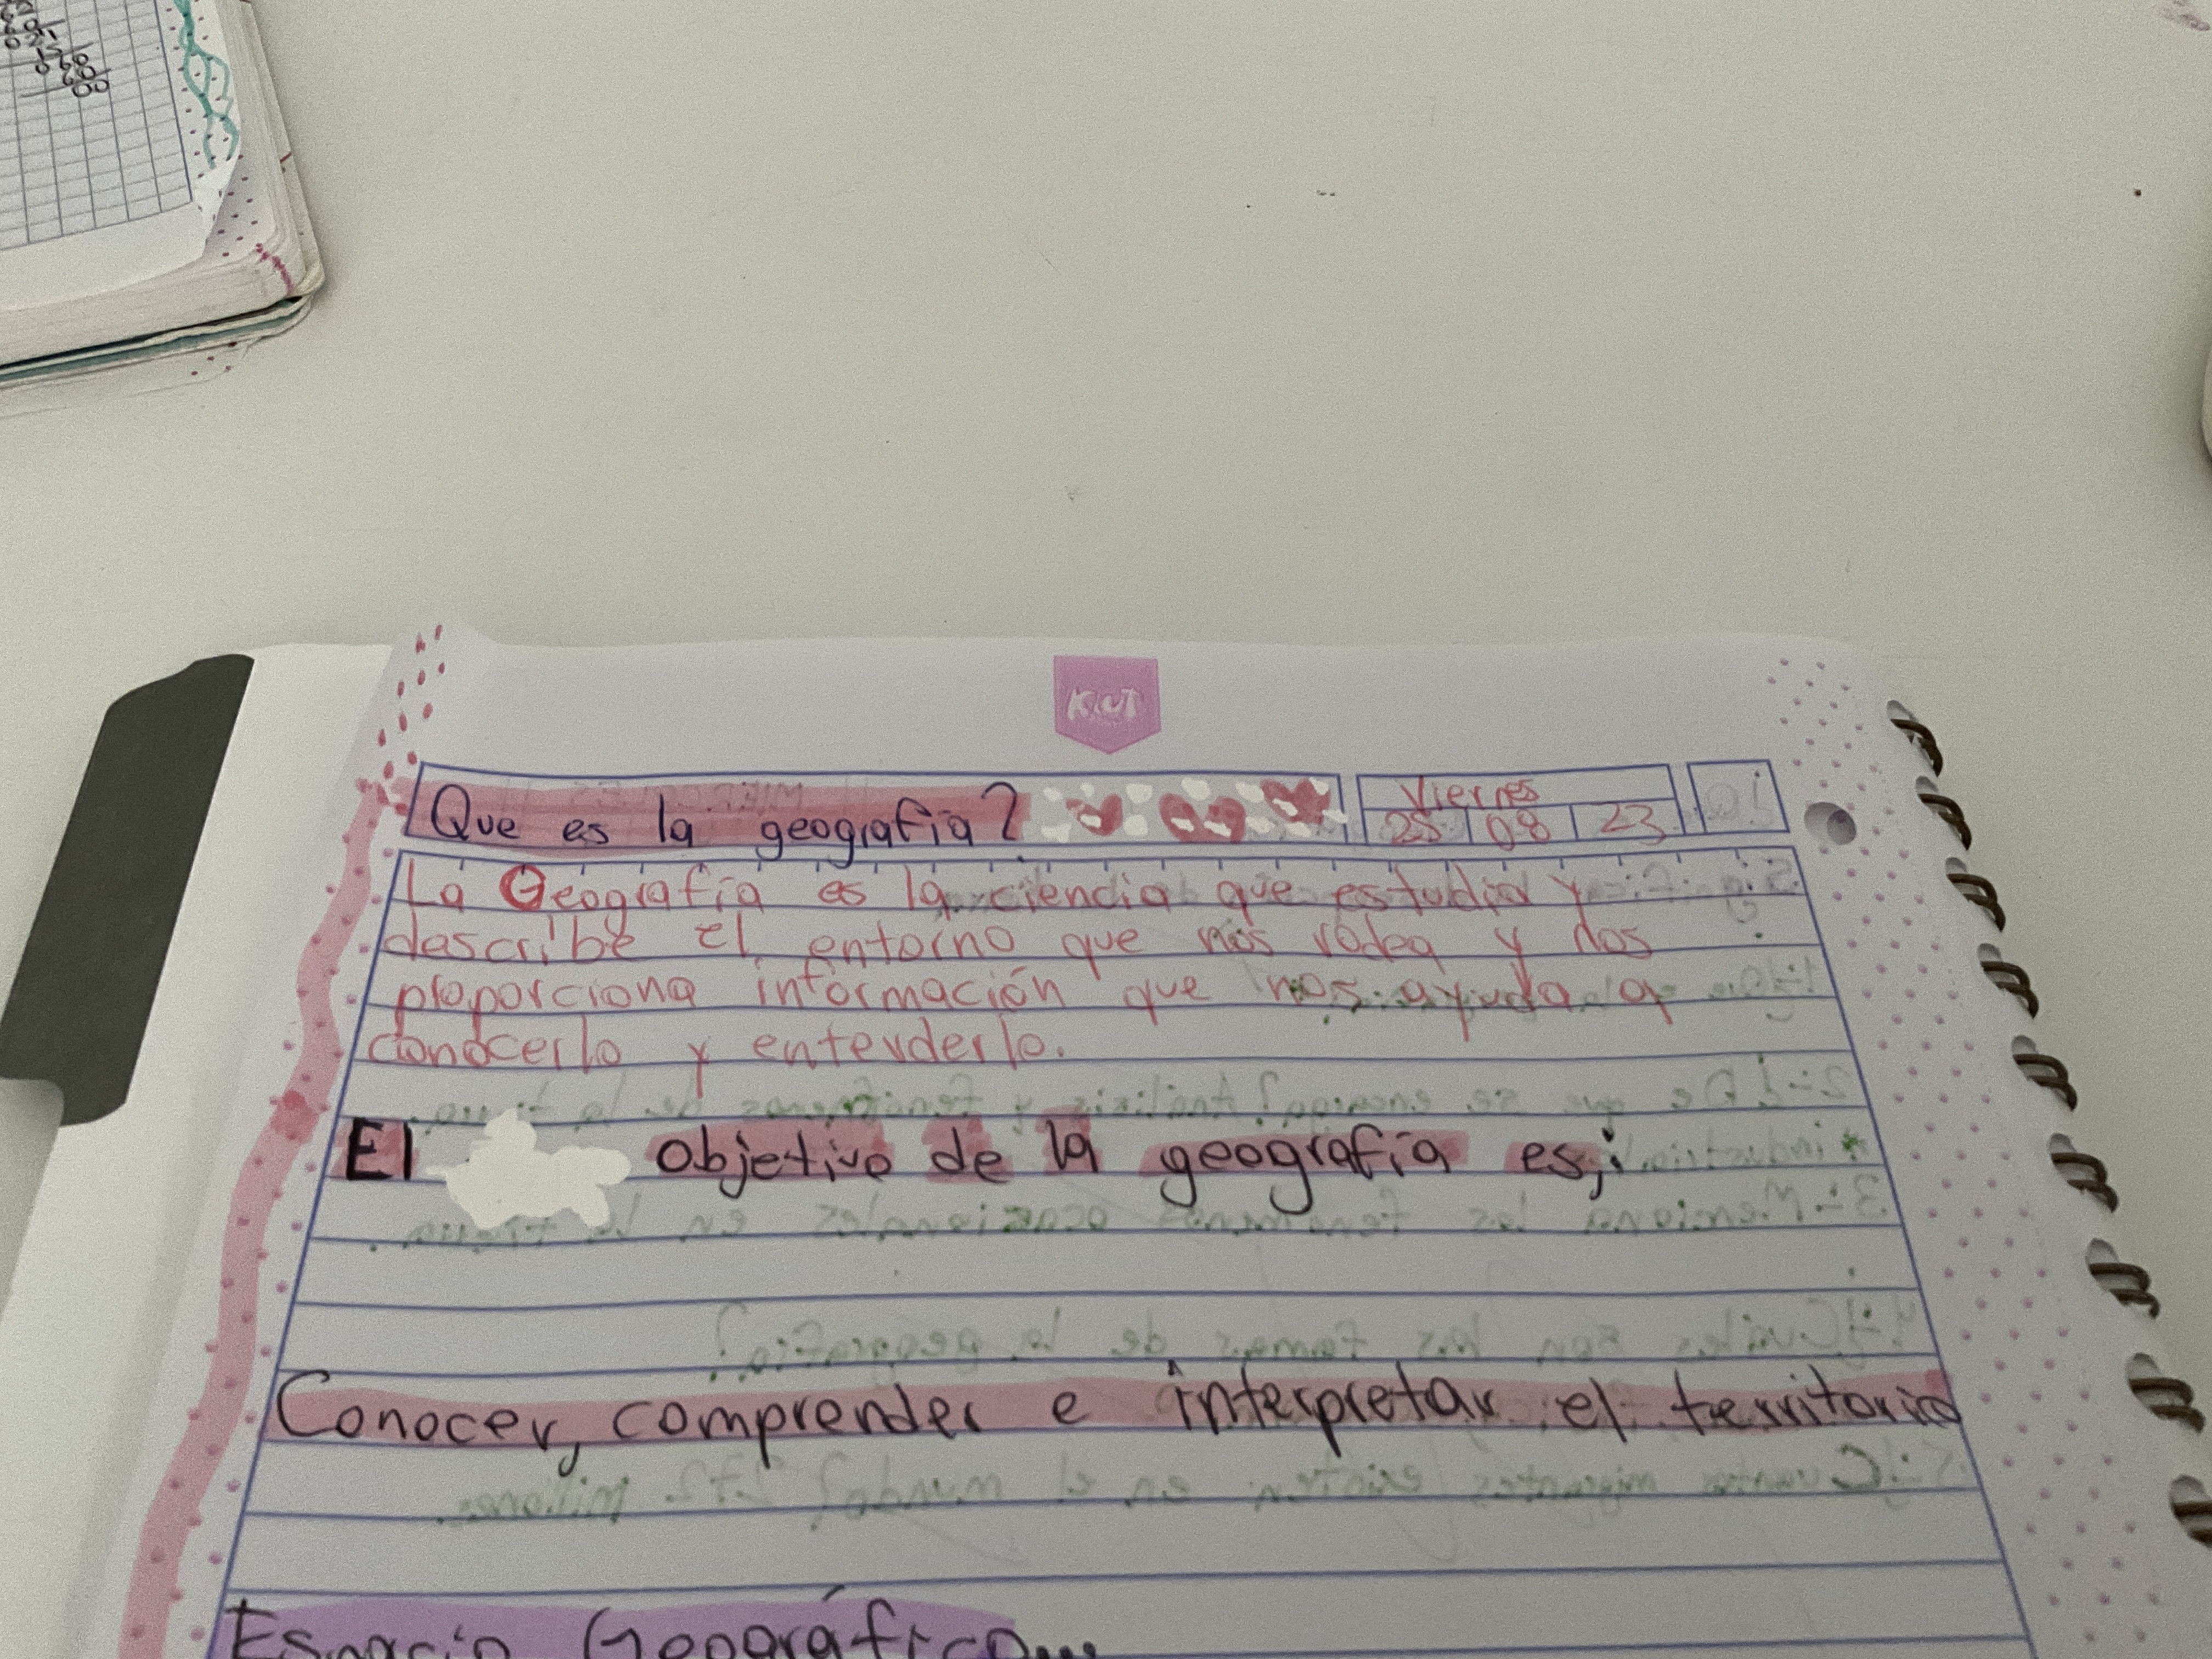 Kiut
Que es la geografia?
Viernes
25 08 23
La Geografía es la ciencia que estudia y
describe el entorno que nos rodea y nos
proporciona información que nos ayuda a
conocerlo y entenderlo.
El objetivo de la geografía es;
Conocer, comprender e interpretar el territorio
Espacio Geográfico...